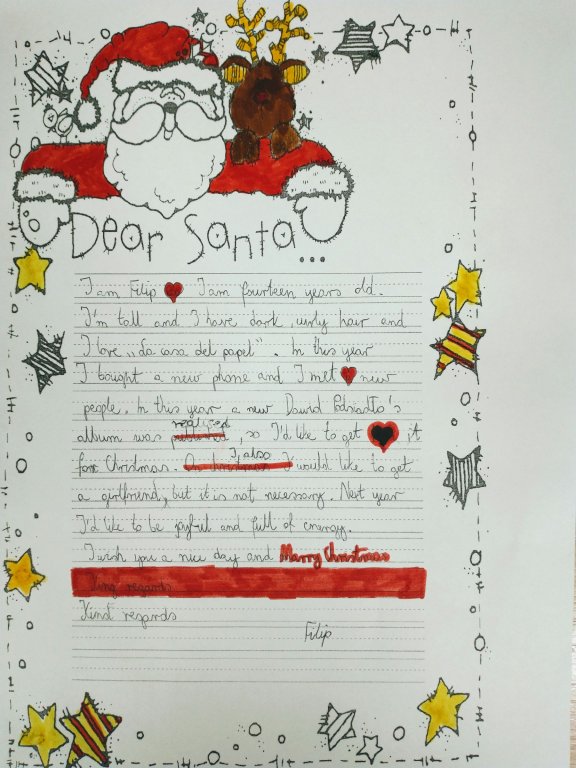 Dear Santa...
I am Filip I am fourteen years old.
I'm tall and I have dark, curly hair and
I love „La casa del papel". In this year
I bought a new phone and I met new
people. In this year a new Dawid Podsiadło's
realized
album was , so I'd like to get it
for Christmas. On christmas I also I would like to get
a girlfriend, but it is not necessary. Next year
I'd like to be joyful and full of energy.
I wish you a nice day and Marry Christmas
King regards
Kind regards
Filip